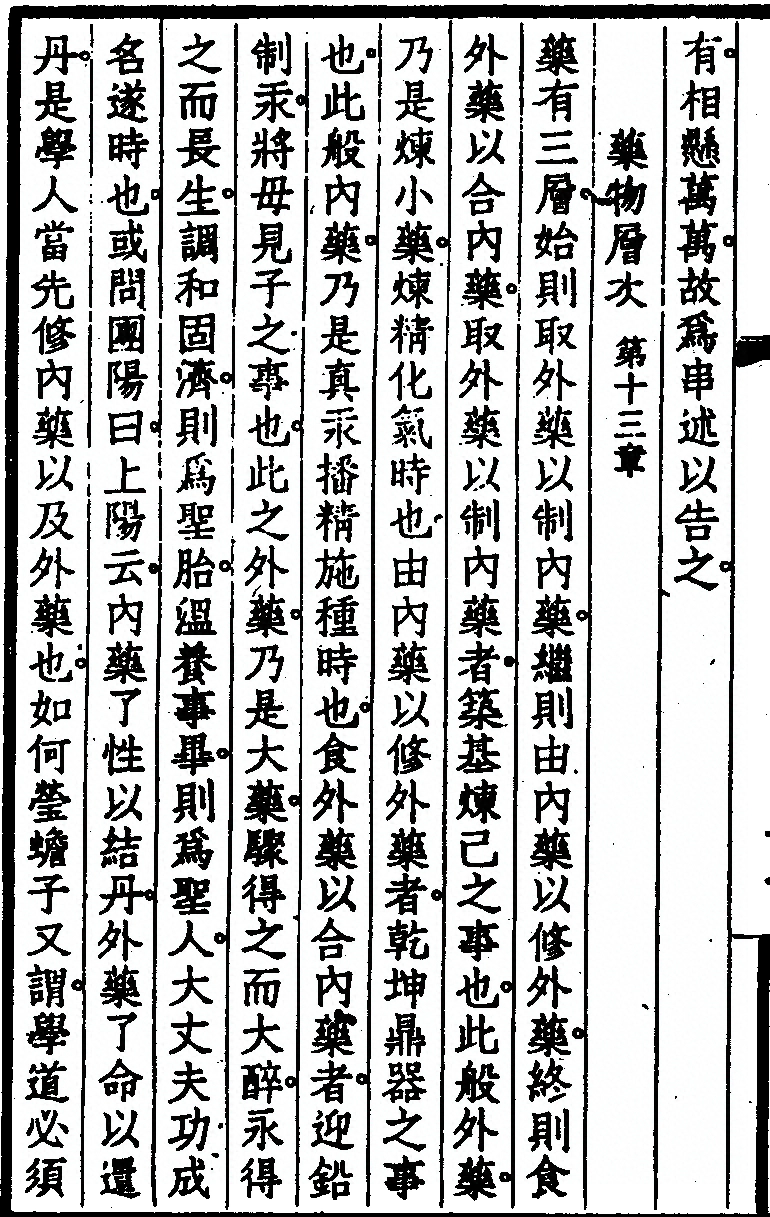 有相懸萬萬故爲串述以告之
藥物層次 第十三章
藥有三層始則取外藥以制內藥繼則由內藥以修外藥終則食
外藥以合內藥取外藥以制內藥者築基煉己之事也此般外藥
乃是煉小藥煉精化氣時也由內藥以修外藥者乾坤鼎器之事
也此般內藥乃是真汞播精施種時也食外藥以合內藥者迎鉛
制汞將母見子之事也此之外藥乃是大藥驟得之而大醉永得
之而長生調和固濟則爲聖胎溫養事畢則爲聖人大丈夫功成
名遂時也或問團陽曰上陽云內藥了性以結丹外藥了命以還
丹是學人當先修內藥以及外藥也如何瑩蟾子又謂學道必須